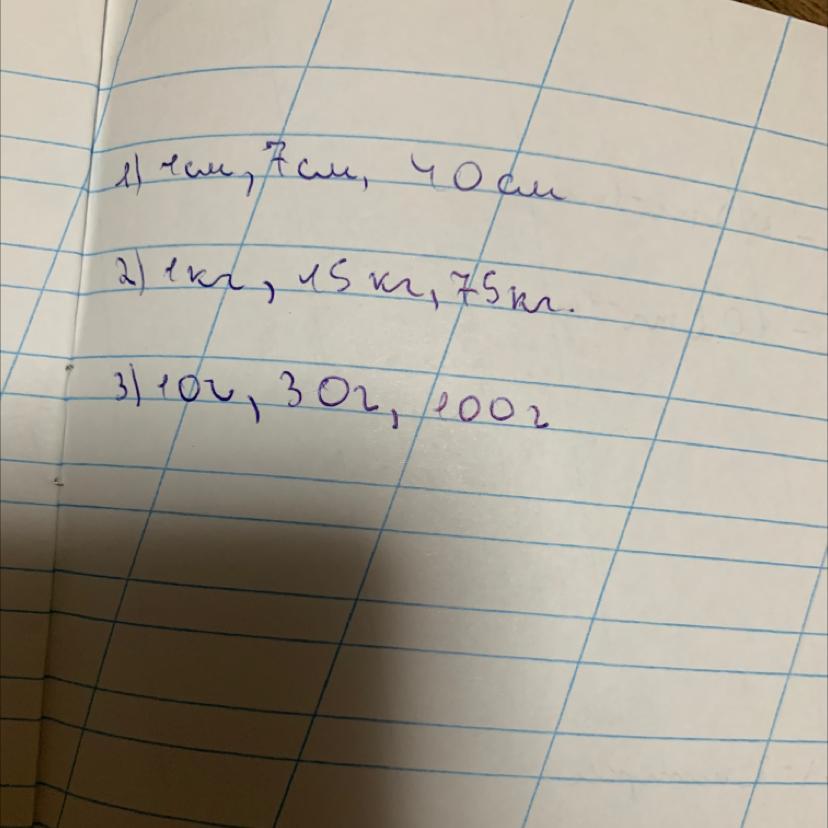 1) 1см, 7см, 40см
2) 1кг, 15кг, 75кг.
3) 10г, 30г, 100г